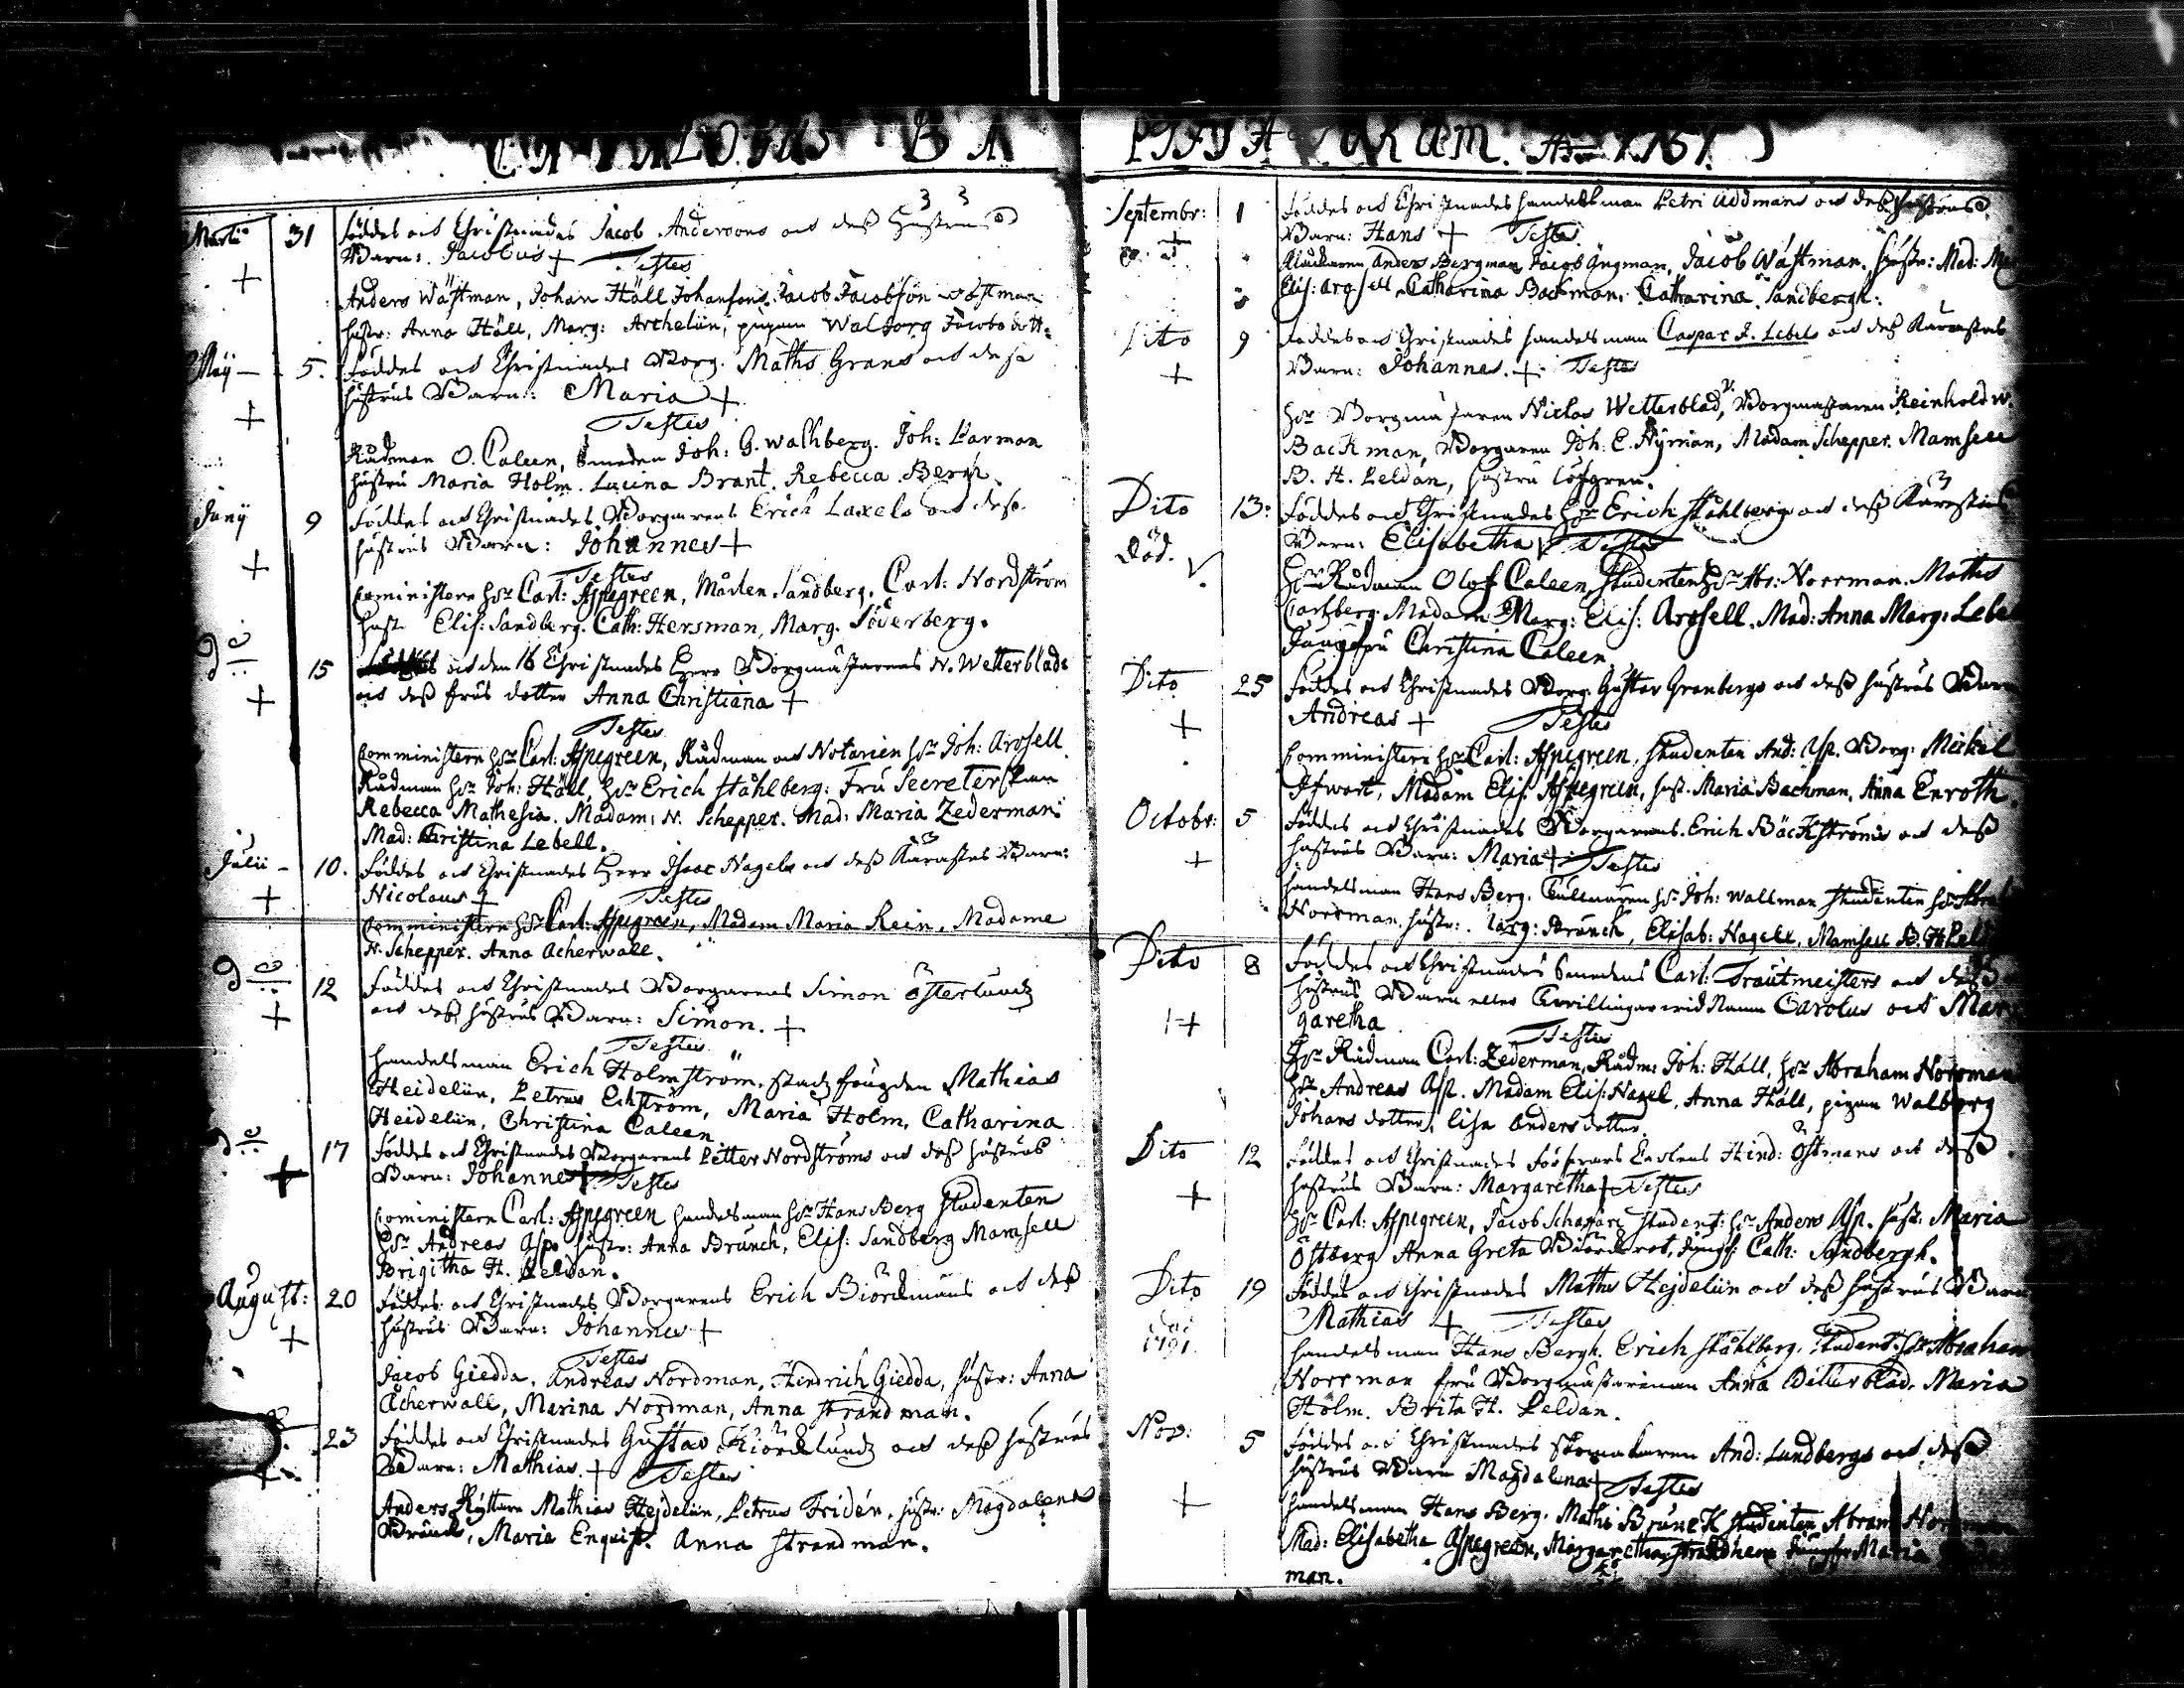 CATALOGUS BA
Martii 31 Föddes och Christnades Jacob Anderssons och dess Hustrus
Barn: Jacobus + Testes
Anders Wästman, Johan Häll Johansons, Jacob Jacobsson Wästman
hustr: Anna Häll, Marg: Arthelin, pigan Walborg Jacobsdott:
Maÿ 5. Föddes och Christnades Borg. Maths Grans och dess
hustrus Barn: Maria +
Testes
Rådman O. Caleen, Smeden Joh: G. Walhberg. Joh: Larman
hustru Maria Holm. Lucina Brant. Rebecca Bergh.
Junÿ 9 Föddes och Christnades Borgarens Erich Laxels och dess
hustrus Barn: Johannes +
Testes
Coministern Hr Carl: Aspegreen, Mårten Sandberg, Carl: Nordström
hust. Elis: Sandberg. Cath: Hersman, Marg. Söderberg.
15 och den 16 Christnades Herr Borgmästarens N. Wetterblads
och dess frus dotter Anna Christiana +
Testes
Comministern Hr Carl: Aspegreen, Rådman och Notarien Hr Joh: Arosell
Rådman Hr Joh: Häll, Hr Erich Ståhlberg: Fru Secreterskan
Rebecca Mathesia. Madam: N. Schepper. Mad: Maria Zederman:
Mad: Christina Lebell.
Julii 10. Föddes och Christnades Herr Isaac Nagels och dess Kärastes Barn:
Nicolaus + Testes
Comministern Hr Carl: Aspegreen, Madam Maria Rein, Madame
N. Schepper. Anna Acherwall.
12 Föddes och Christnades Borgarens Simon Österlunds
och dess hustrus Barn: Simon. +
Testes
Handelsman Erich Holmström, Stadz fougden Mathias
Heideliin, Petrus Eckström, Maria Holm, Catharina
Heideliin, Christina Caleen
17 Föddes och Christnades Borgarens Petter Nordströms och dess hustrus
Barn: Johannes + Testes
Cominstern Carl: Aspegreen handelsman Hr Hans Berg Studenten
Hr Andreas Asp. hustr: Anna Brunck, Elis: Sandberg Mamsell
Brigitha H. Peldan.
August: 20 Föddes och Christnades Borgarens Erich Biörkmans och dess
hustrus Barn: Johannes +
Testes
Jacob Giedda, Andreas Nordman, Hindrich Giedda, hustr: Anna
Acherwall, Marina Nordman, Anna Strandman.
23 Föddes och Christnades Gustav Kiörcklundz och dess hustrus
Barn: Mathias. + Testes
Anders Ryttare Mathias Hejdeliin, Petrus Fridén, hustr: Magdalena
Brunck, Maria Enquist. Anna Strandman.
PTISATORUM. Anno 1751
Septembr: 1 Föddes och Christnades handelsman Petri Uddmans och dess hustrus
Barn: Hans + Testes.
Klockaren Anders Bergman, Jacob Ångman, Jacob Wästman. hustr: Mad:
Elis: Arosell Catharina Backman. Catharina Sandbergh.
Dito 9 Föddes och Christnades handelsman Caspar J. Lebels och dess Kärestes
Barn: Johannes. + Testes
Hr Borgmästaren Niclas Wetterblad, Borgmästaren Reinhold W.
Backman, Borgaren Joh: E. Nyman, Madam Schepper. Mamsell
B. H. Peldan, hustru Löfgren.
Dito 13: Föddes och Christnades Hr Erich Ståhlbergs och dess Kärestas
Död. Barn: Elisabetha Testes
Hr Rådman Olof Caleen, Studenten Hr Abr: Norrman. Maths
Carlberg. Madam Marg: Elis: Arosell. Mad: Anna Marg: Lebel
Jungfru Christina Caleen
Dito 25 Föddes och Christnades Borg. Gustav Granbergs och dess hustrus Barn
Andreas + Testes
Comministern Hr Carl: Aspegreen, Studenten And: Asp. Borg: Mickel
Madam Elis. Aspegreen, hust. Maria Bachman, Anna Enroth.
Octobr: 5 Föddes och Christnades Borgarens Erich Bäckströms och dess
hustrus Barn: Maria + Testes
Handelsman Hans Berg. Tullnären Hr Joh: Wallman Studenten Hr Abrah
Norrman. hustr: Marg: Brunck, Elisab: Nagell, Mamsell B: H Peld
Dito 8 Föddes och Christnades Smedens Carl: Trautmeisters och dess
hustrus Barn eller Tvillingar wid Namn Carolus och Mar
garetha. Testes
Hr Rådman Carl: Zederman, Rådm: Joh: Häll, Hr Abraham Norrman
Hr Andreas Asp. Madam Elis: Nagel, Anna Häll, pigan Walborg
Johans dotter, Lisa Anders dotter.
Dito 12 Föddes och Christnades Hind: Östmans och dess
hustrus Barn: Margaretha + Testes
Hr Carl: Aspegreen, Jacob Schafare Student: Hr Anders Asp. hust: Maria
Östberg Anna Greta Jungf: Cath: Sandbergh.
Dito 19 Föddes och Christnades Maths Hejdeliin och dess hustrus Barn
Mathias + Testes
1791. Handelsman Hans Bergh. Erich Ståhlberg. Student: Hr Abraham
Norrman fru Borgmästarinnan Anna Wetterblad, Maria
Holm. Brita H. Peldan.
Nov: 5 Föddes och Christnades Skomakaren And: Lundbergs och dess
hustrus Barn Magdalena + Testes
Handelsman Hans Berg. Maths Brunck Studenten Abram Norrman
Mad: Elisabetha Aspegreen, Margaretha Maria
man.